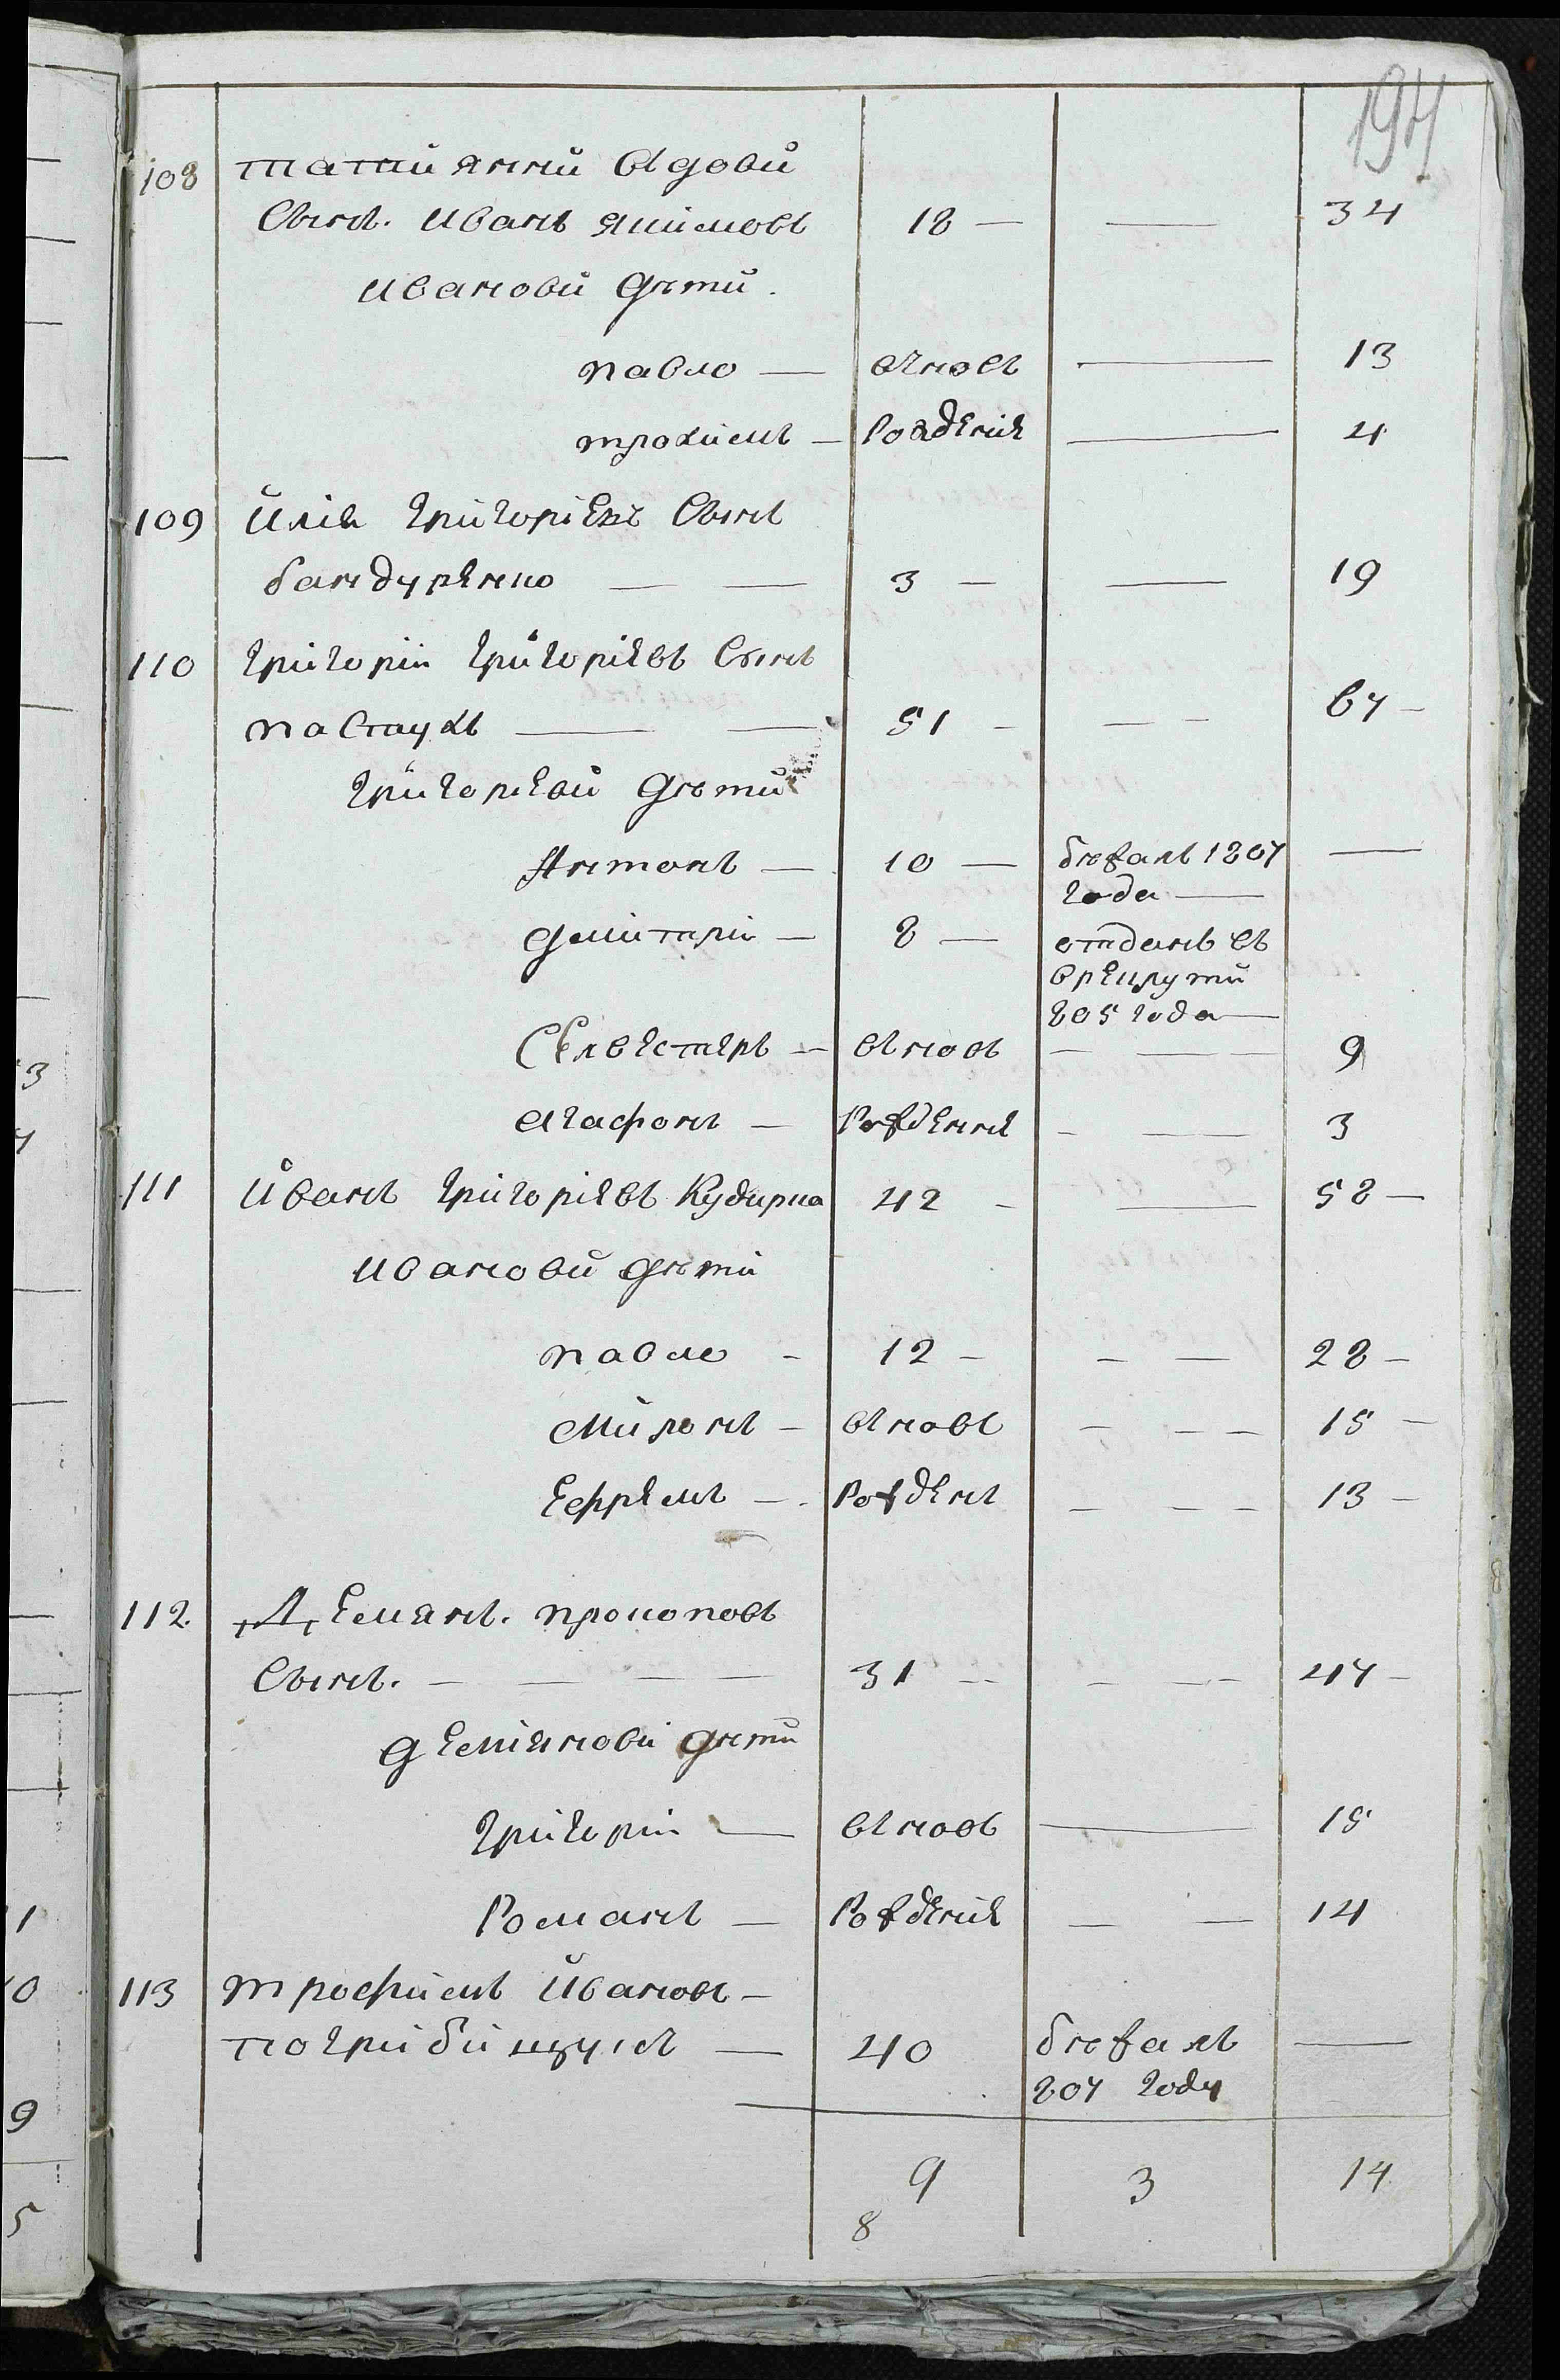 194
108 татиянній вдови
Сынъ. иванъ якимовъ 18 — — 34
ивановы дѣти.
павло — вновъ — 13
трохимъ — рожденій — 4
109 илія григоріевъ Сынъ
бандуренко — — 3 — — 19
110 григорій григоріевъ Сынъ
пастухъ — — 51 — — 67 —
григоревы дѣти
Антонъ — 10 — бѣжалъ 1807 —
года —
дмитрій — 8 — отданъ въ
врекруты
805 года —
Селвестеръ — вновъ — 9
агафонъ — рожденне — 3
111 иванъ григоріевъ Кудирка 42 — — 58 —
ивановы дѣти
павло — 12 — — 28 —
миронъ — вновъ — 15 —
Ефремъ — рожденъ — 13 —
112. Демянъ. прокоповъ
Сынъ. — 31 — — 47 —
деміяновы дѣти
григорій — вновъ — 15
Романъ — рожденій — 14
113 трофимъ ивановъ —
40 бѣжалъ —
807 году
9 3 14
8
3
1
0
9
5